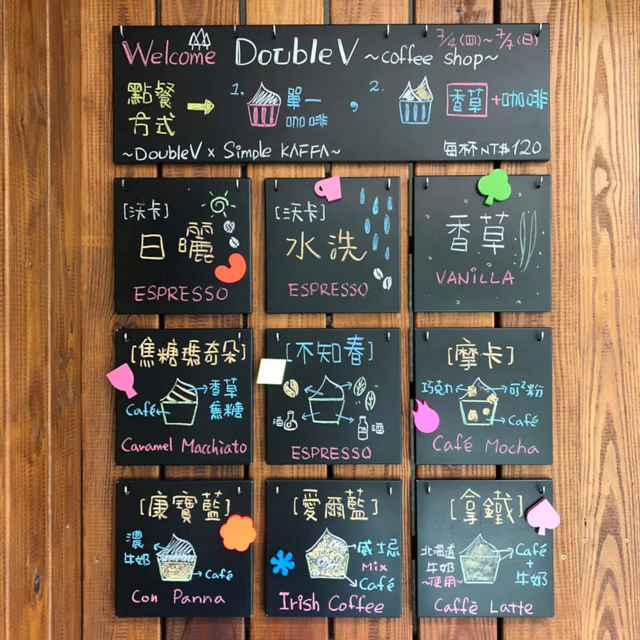 Welcome DoubleV ~coffee shop~
7/4(四)~7/7(日)
點餐方式
1. 單一咖啡
,
2. 香草+咖啡
~DoubleV x Simple KAFFA~
每杯NT$120
[沃卡]
日曬
ESPRESSO
[沃卡]
水洗
ESPRESSO
香草
VANILLA
[焦糖瑪奇朵]
香草
焦糖
Café
Caramel Macchiato
[不知春]
酒
酒
ESPRESSO
[摩卡]
巧克力
可可粉
Café
Café Mocha
[康寶藍]
濃
牛奶
Café
Con Panna
[愛爾藍]
威士忌
Mix
Café
Irish Coffee
[拿鐵]
北海道
牛奶
~使用~
Café
+
牛奶
Caffè Latte